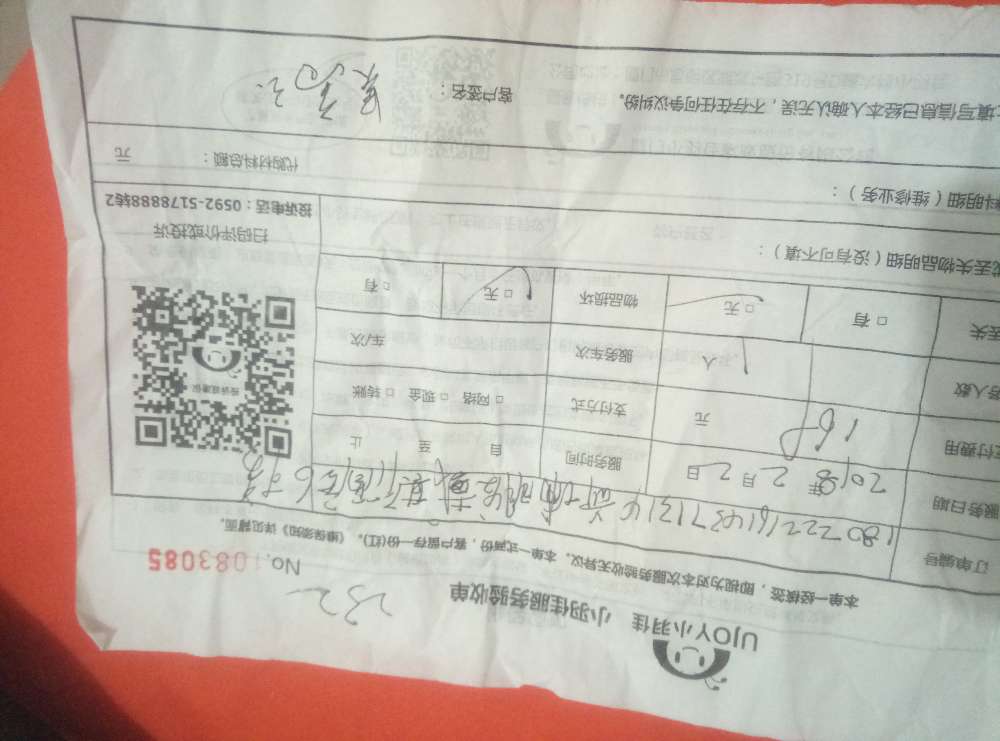 UJOY小羽佳 小羽佳服务验收单
232
No.1083085
本单一经核签，即视为对本次服务验收无异议。本单一式两份，客户留存一份(红)。《维保须知》详见背面。
订单编号 180222161437131
服务日期 2018年2月2日 服务时间 自 至 止
付费用 168 元 支付方式 □ 网络 □ 现金 □ 转账
人数 1人 服务车次 车/次
丢失 □ 有 □ 无 物品损坏 □ 无 □ 有
投诉或建议
扫码评价或投诉
投诉电话：0592-5178888转2
丢失物品明细（没有可不填）：
料明细（维修业务）：
代购材料总额： 元
填写信息已经本人确认无误，不存在任何争议纠纷。
客户签名：